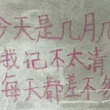 今天是几月几
我记不太清
每天都差不多